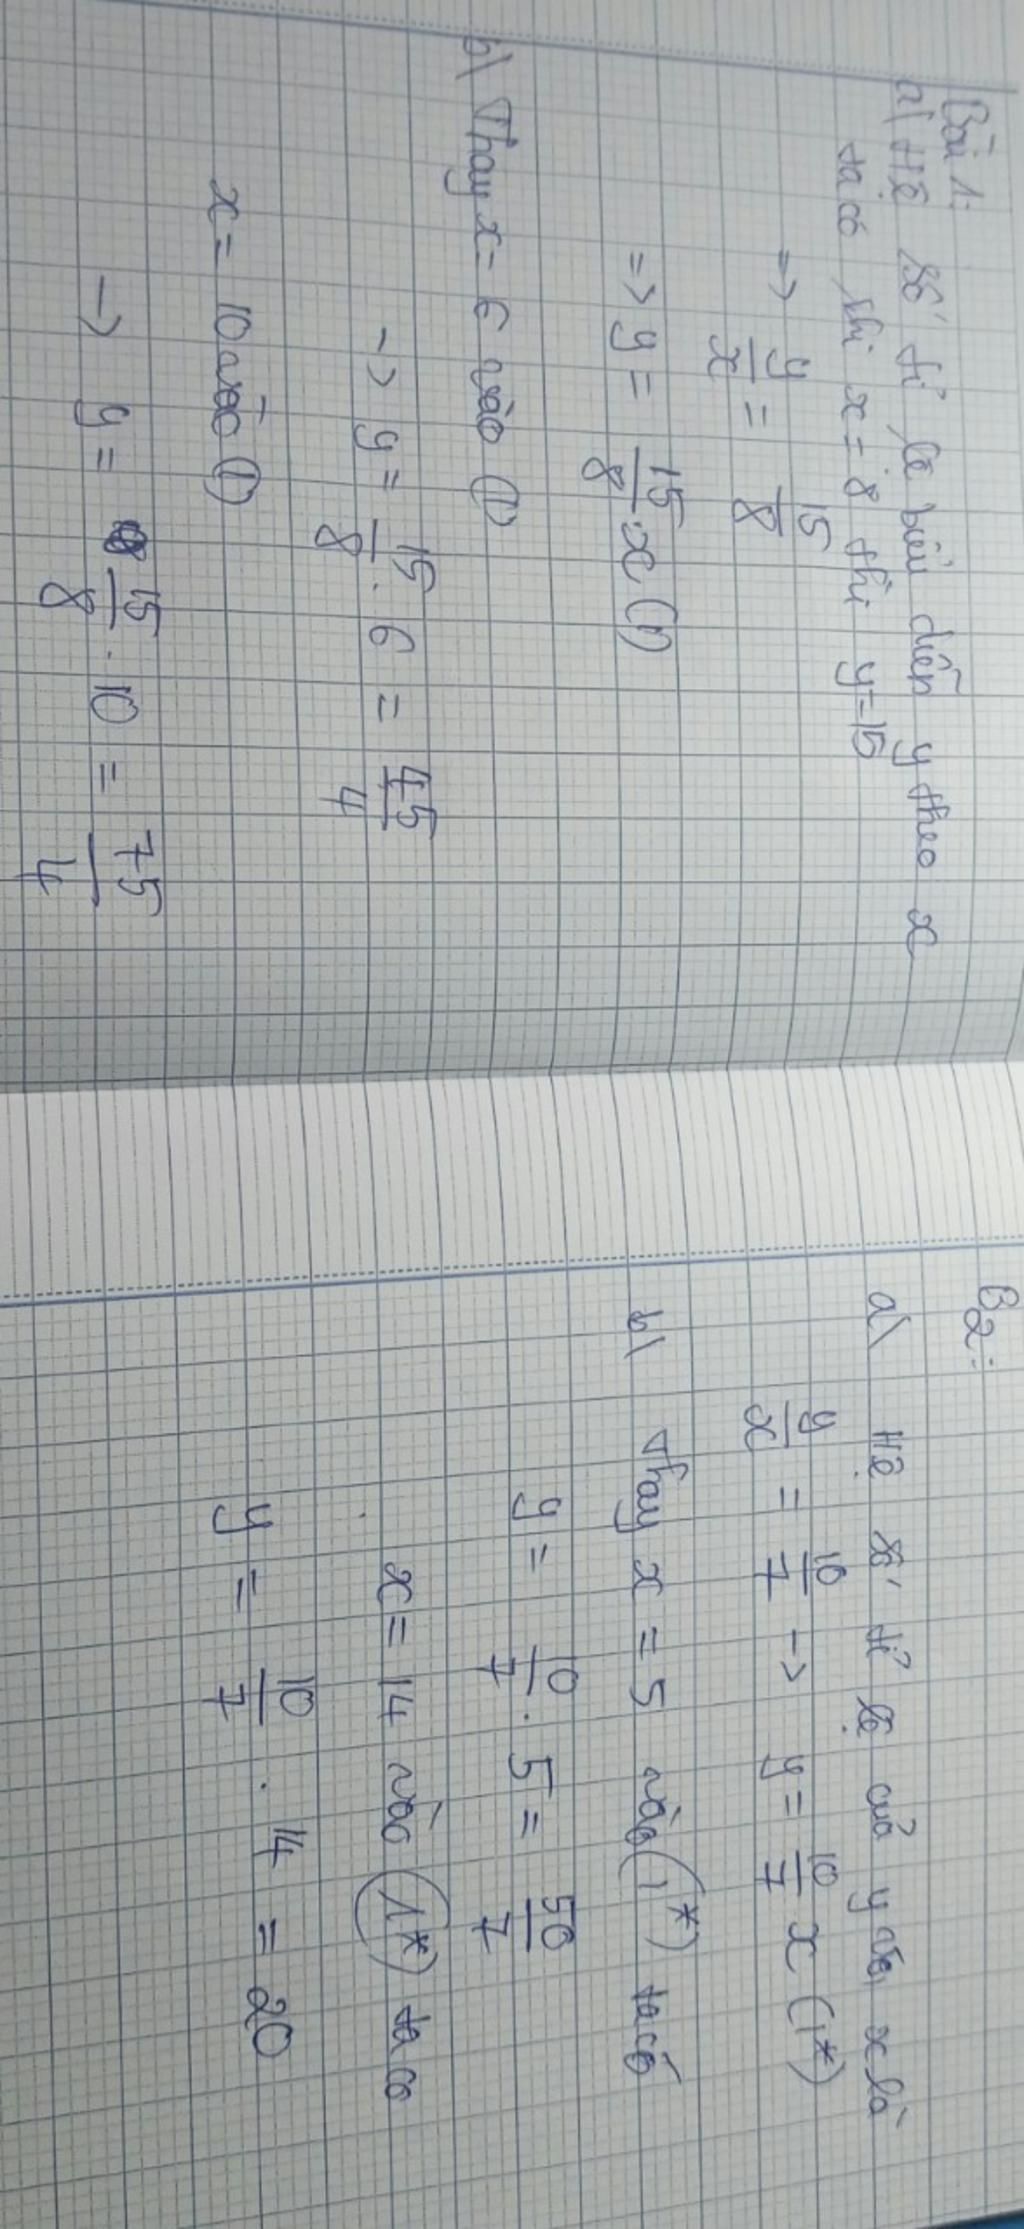 Bài 1:
a) Hệ số tỉ lệ biểu diễn y theo x
ta có khi x = 8 thì y = 15
=> y/x = 15/8
=> y = 15/8 x (1)
b) Thay x = 6 vào (1)
-> y = 15/8 . 6 = 45/4
x = 10 vào (1)
-> y = 15/8 . 10 = 75/4
B2:
a) Hệ số tỉ lệ của y x là
y/x = 10/7 -> y = 10/7 x (1*)
b) Thay x = 5 vào (1*) ta có
y = 10/7 . 5 = 50/7
x = 14 vào (1*) ta có
y = 10/7 . 14 = 20